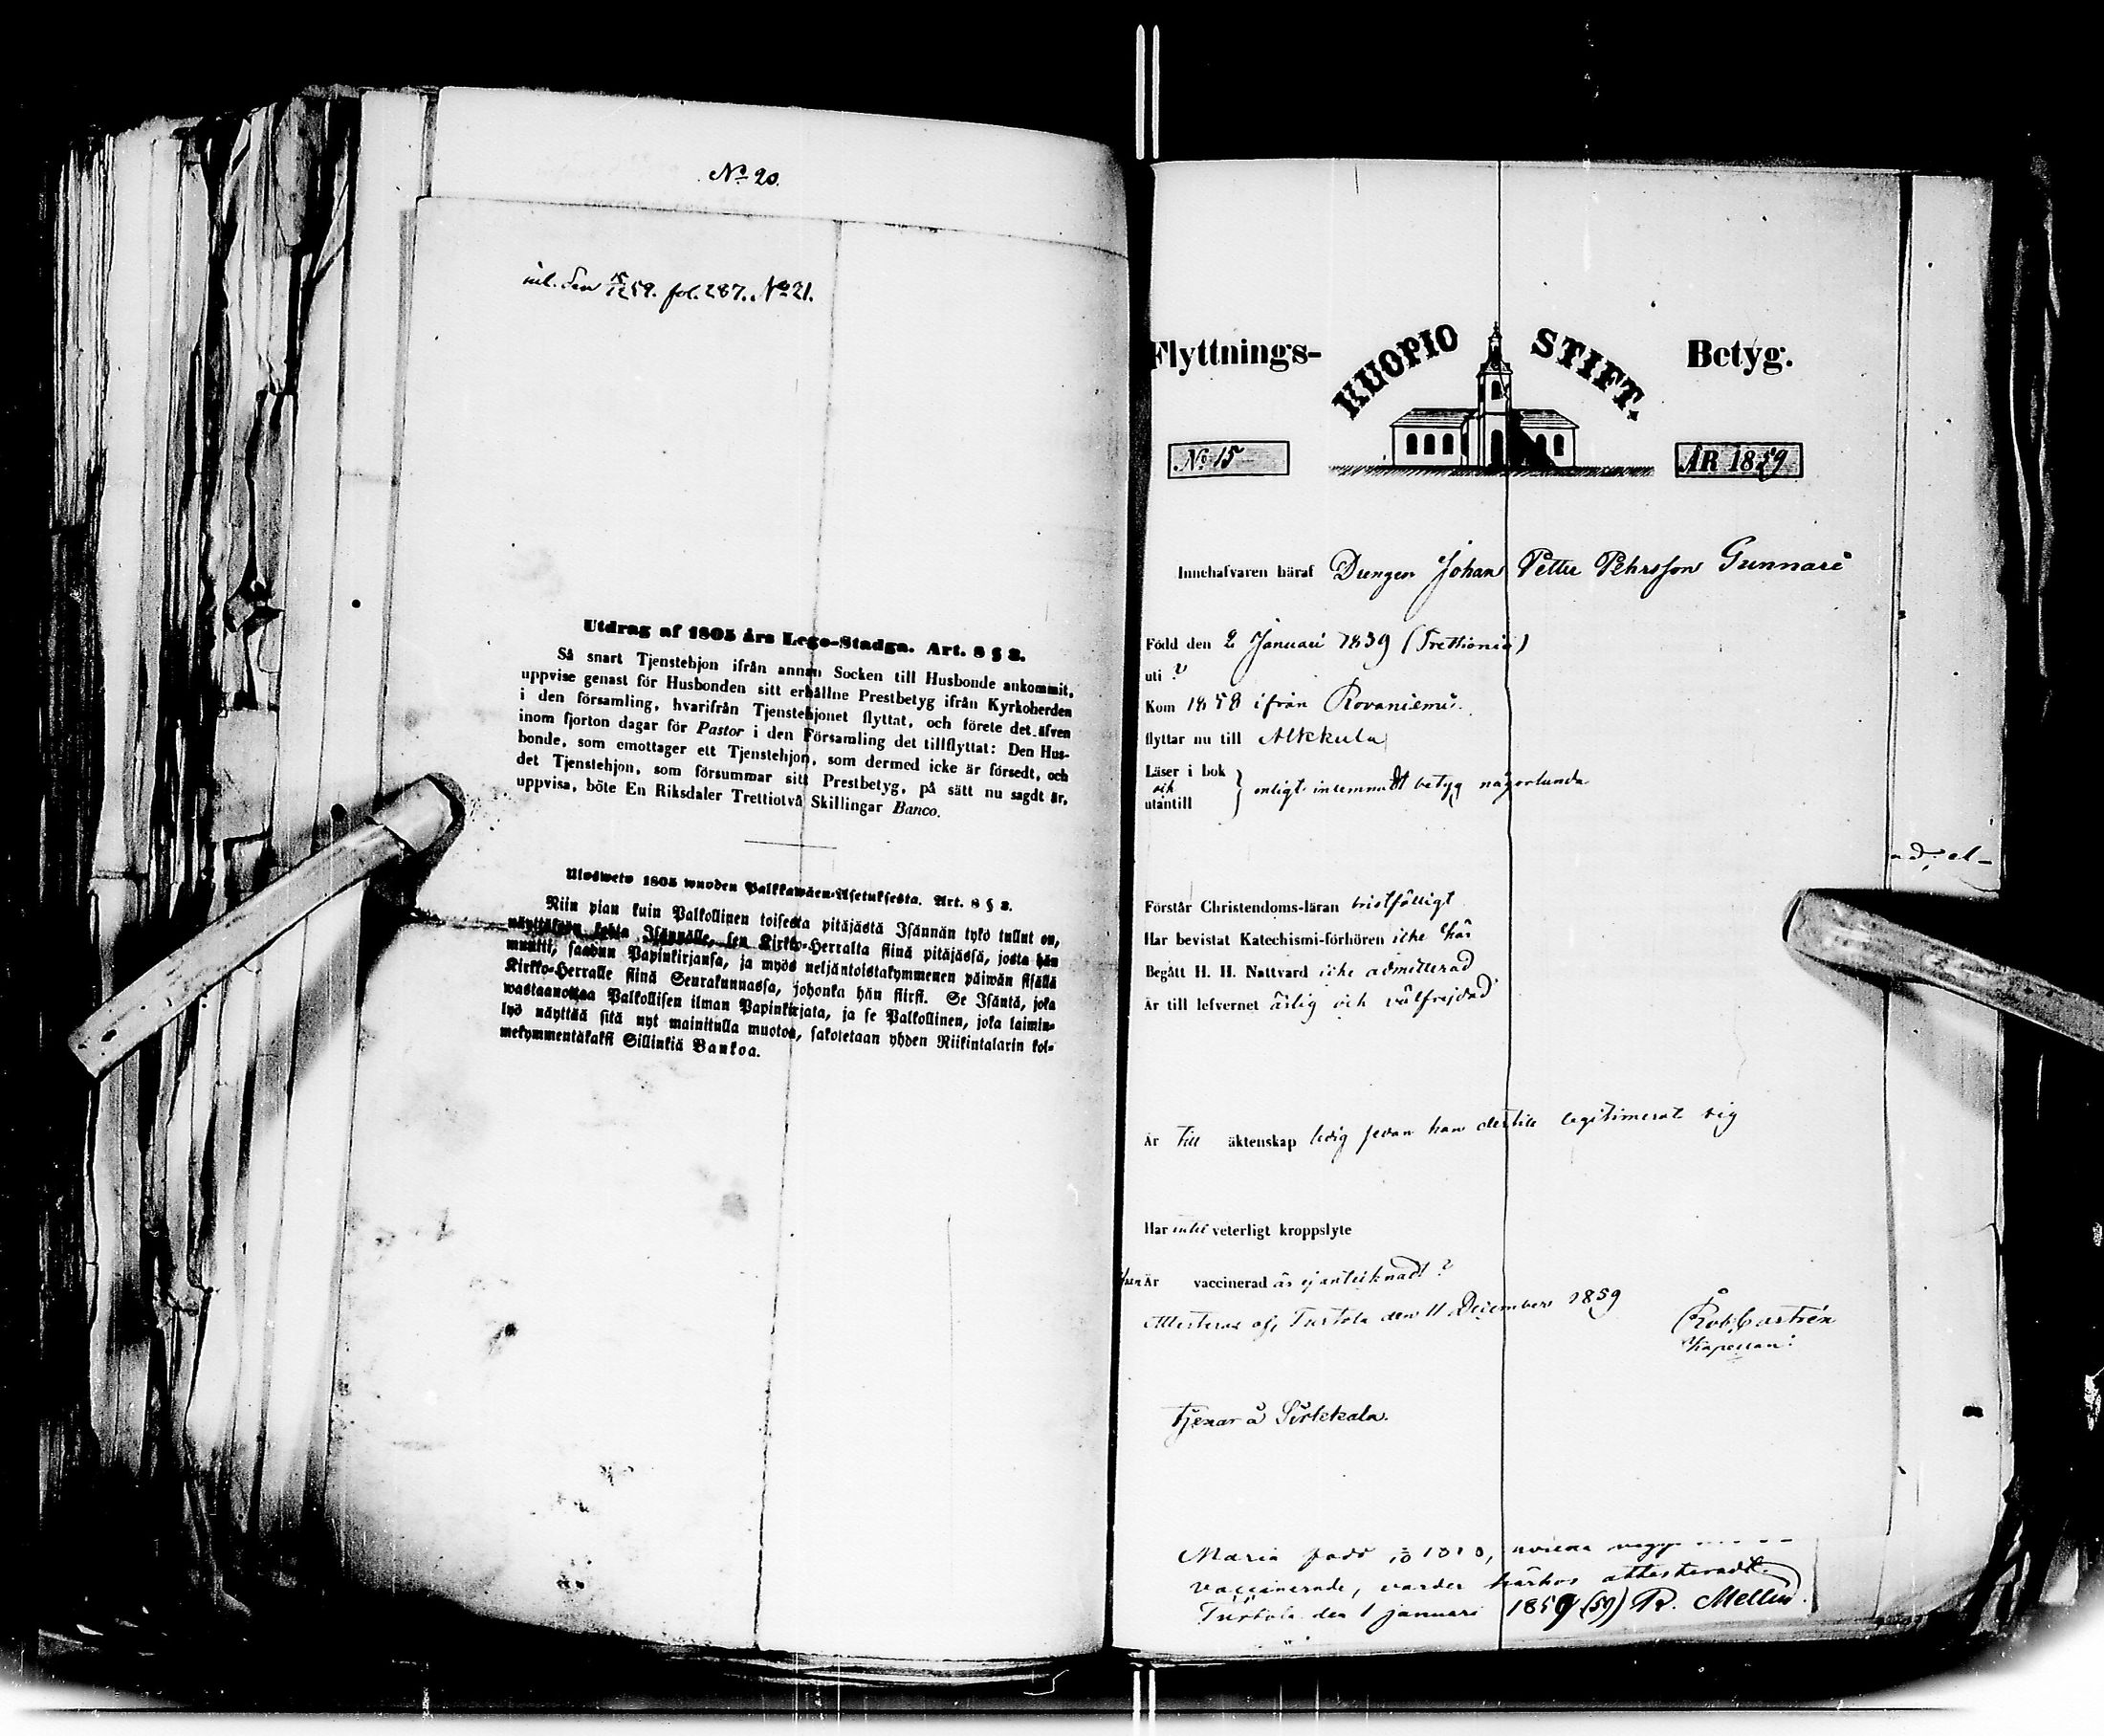 No 20.
inl. den 15/12 59. fol. 287. No 21.
Utdrag af 1805 års Lego-Stadga. Art. 8 § 3.
Så snart Tjenstehjon ifrån annan Socken till Husbonde ankommit,
uppvise genast för Husbonden sitt erhållne Prestbetyg ifrån Kyrkoherden
i den församling, hvarifrån Tjenstehjonet flyttat, och förete det äfven
inom fjorton dagar för Pastor i den Församling det tillflyttat: Den Hus-
bonde, som emottager ett Tjenstehjon, som dermed icke är försedt, och
det Tjenstehjon, som försummar sitt Prestbetyg, på sätt nu sagdt är,
uppvisa, böte En Riksdaler Trettiotvå Skillingar Banco.
Ulosweto 1805 wuoden Palkkawäen-Asetuksesta. Art. 8 § 3.
Niin pian kuin Palkollinen toisesta pitäjästä Isännän tykö tullut on,
näyttäkään kohta Isännälle, sen Kirkko-Herralta siinä pitäjässä, josta hän
muutti, saadun Papinkirjansa, ja myös neljäntoistakymmenen päiwän sisällä
Kirkko-Herralle siinä Seurakunnassa, johonka hän siirsi. Se Isäntä, joka
wastaanottaa Palkollisen ilman Papinkirjata, ja se Palkollinen, joka laimin-
lyö näyttää sitä nyt mainitulla muotoa, sakotetaan yhden Riikintalarin kol-
mekymmentäkaksi Sillinkiä Bankoa.
Flyttnings- KUOPIO STIFT. Betyg.
No 15 ÅR 1859
Innehafvaren häraf Drengen Johan Petter Pehrsson Gunnari
Född den 2 Januari 1839 (Trettionio)
uti ?
Kom 1858 ifrån Rovaniemi.
flyttar nu till Alkkula
Läser i bok
och
utantill } enligt inlemnadt betyg någorlunda
Förstår Christendoms-läran bristfälligt
Har bevistat Katechismi-förhören icke här
Begått H. H. Nattvard icke admitterad
Är till lefvernet ärlig och välfrejdad
Är till äktenskap ledig sedan han dertill legitimerat sig
Har intet veterligt kroppslyte
Är vaccinerad är ej antecknadt ?
Attesterar af, Turtola den 11 December 1859
Rob. Castrén
Kapellan.
Tjenar å Sirkkala.
ad. el-
Maria född 1818,
vaccinerade, varder härhos attesteradt.
Turtola den 1 januari 1859 (59) R. Mellin